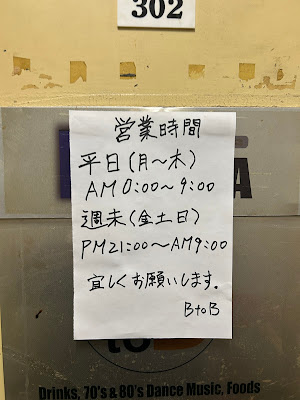 302
営業時間
平日(月〜木)
AM0:00〜9:00
週末(金土日)
PM21:00〜AM9:00
宜しくお願いします.
BtoB
Drinks, 70's & 80's Dance Music, Foods